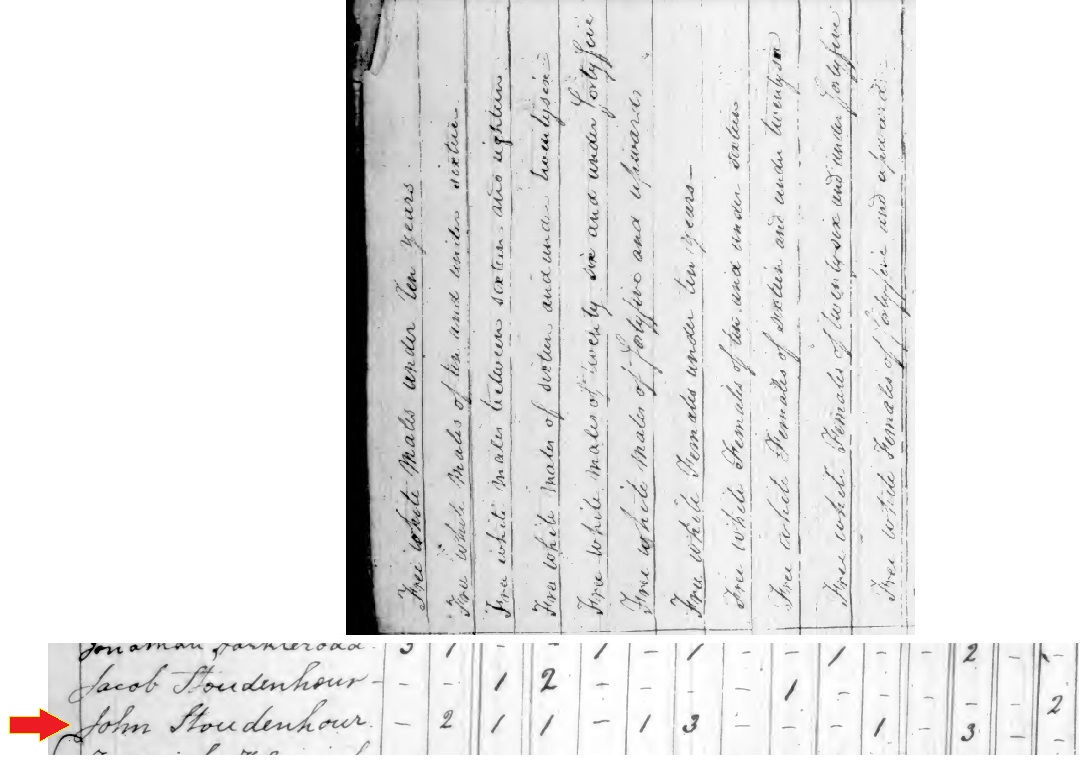 Free white Males under ten years
Free white Males of ten and under sixteen
Free white males between sixteen and eighteen
Free white males of sixteen and under twentysix
Free white males of twenty six and under fortyfive
Free white Males of fortyfive and upwards
Free white Females under ten years—
Free white Females of ten and under sixteen
Free white Females of sixteen and under twentysix
Free white Females of twentysix and under fortyfive
Free white Females of fortyfive and upward
3 1 - - 1 - 1 - - 1 - 2 - -
Jacob Stoudenhour - - - 1 2 - - - - 1 - - - - 2
John Stoudenhour - 2 1 1 - 1 3 - - - 1 - 3 - -